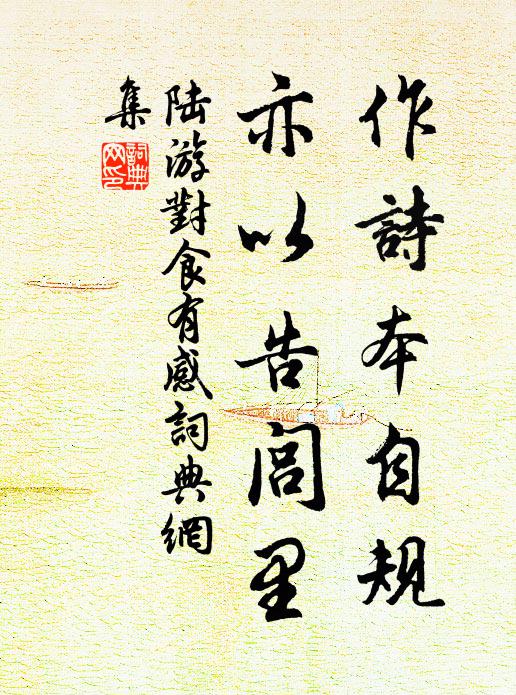 作詩本自規
亦以告閭里
陸游對食有感詞典網
集
詞典
网印